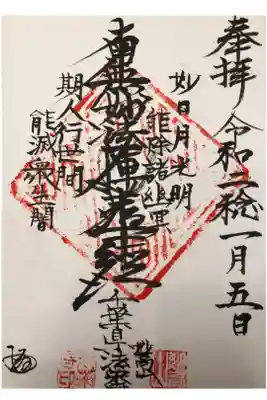 奉拝 令和二稔一月五日
如日月光明
能除諸幽冥
南無妙法蓮華経
斯人行世間
能滅衆生闇
千葉県